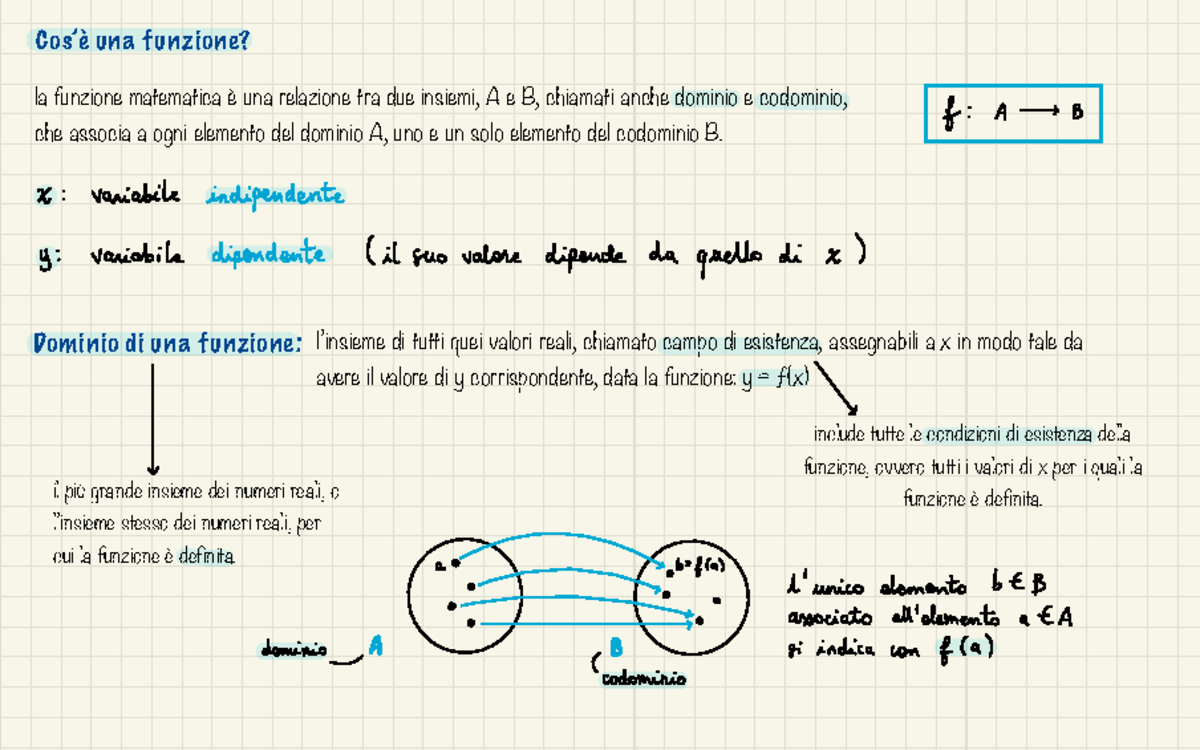 Cos'è una funzione?
la funzione matematica è una relazione tra due insiemi, A e B, chiamati anche dominio e codominio,
che associa a ogni elemento del dominio A, uno e un solo elemento del codominio B.
f: A ⟶ B
x: variabile indipendente
y: variabile dipendente (il suo valore dipende da quello di x)
Dominio di una funzione: l'insieme di tutti quei valori reali, chiamato campo di esistenza, assegnabili a x in modo tale da
avere il valore di y corrispondente, data la funzione: y = f(x)
include tutte le condizioni di esistenza della
funzione, ovvero tutti i valori di x per i quali la
funzione è definita.
il più grande insieme dei numeri reali, o
l'insieme stesso dei numeri reali, per
cui la funzione è definita
a
b=f(a)
dominio A
B
codominio
L'unico elemento b ∈ B
associato all'elemento a ∈ A
si indica con f(a)